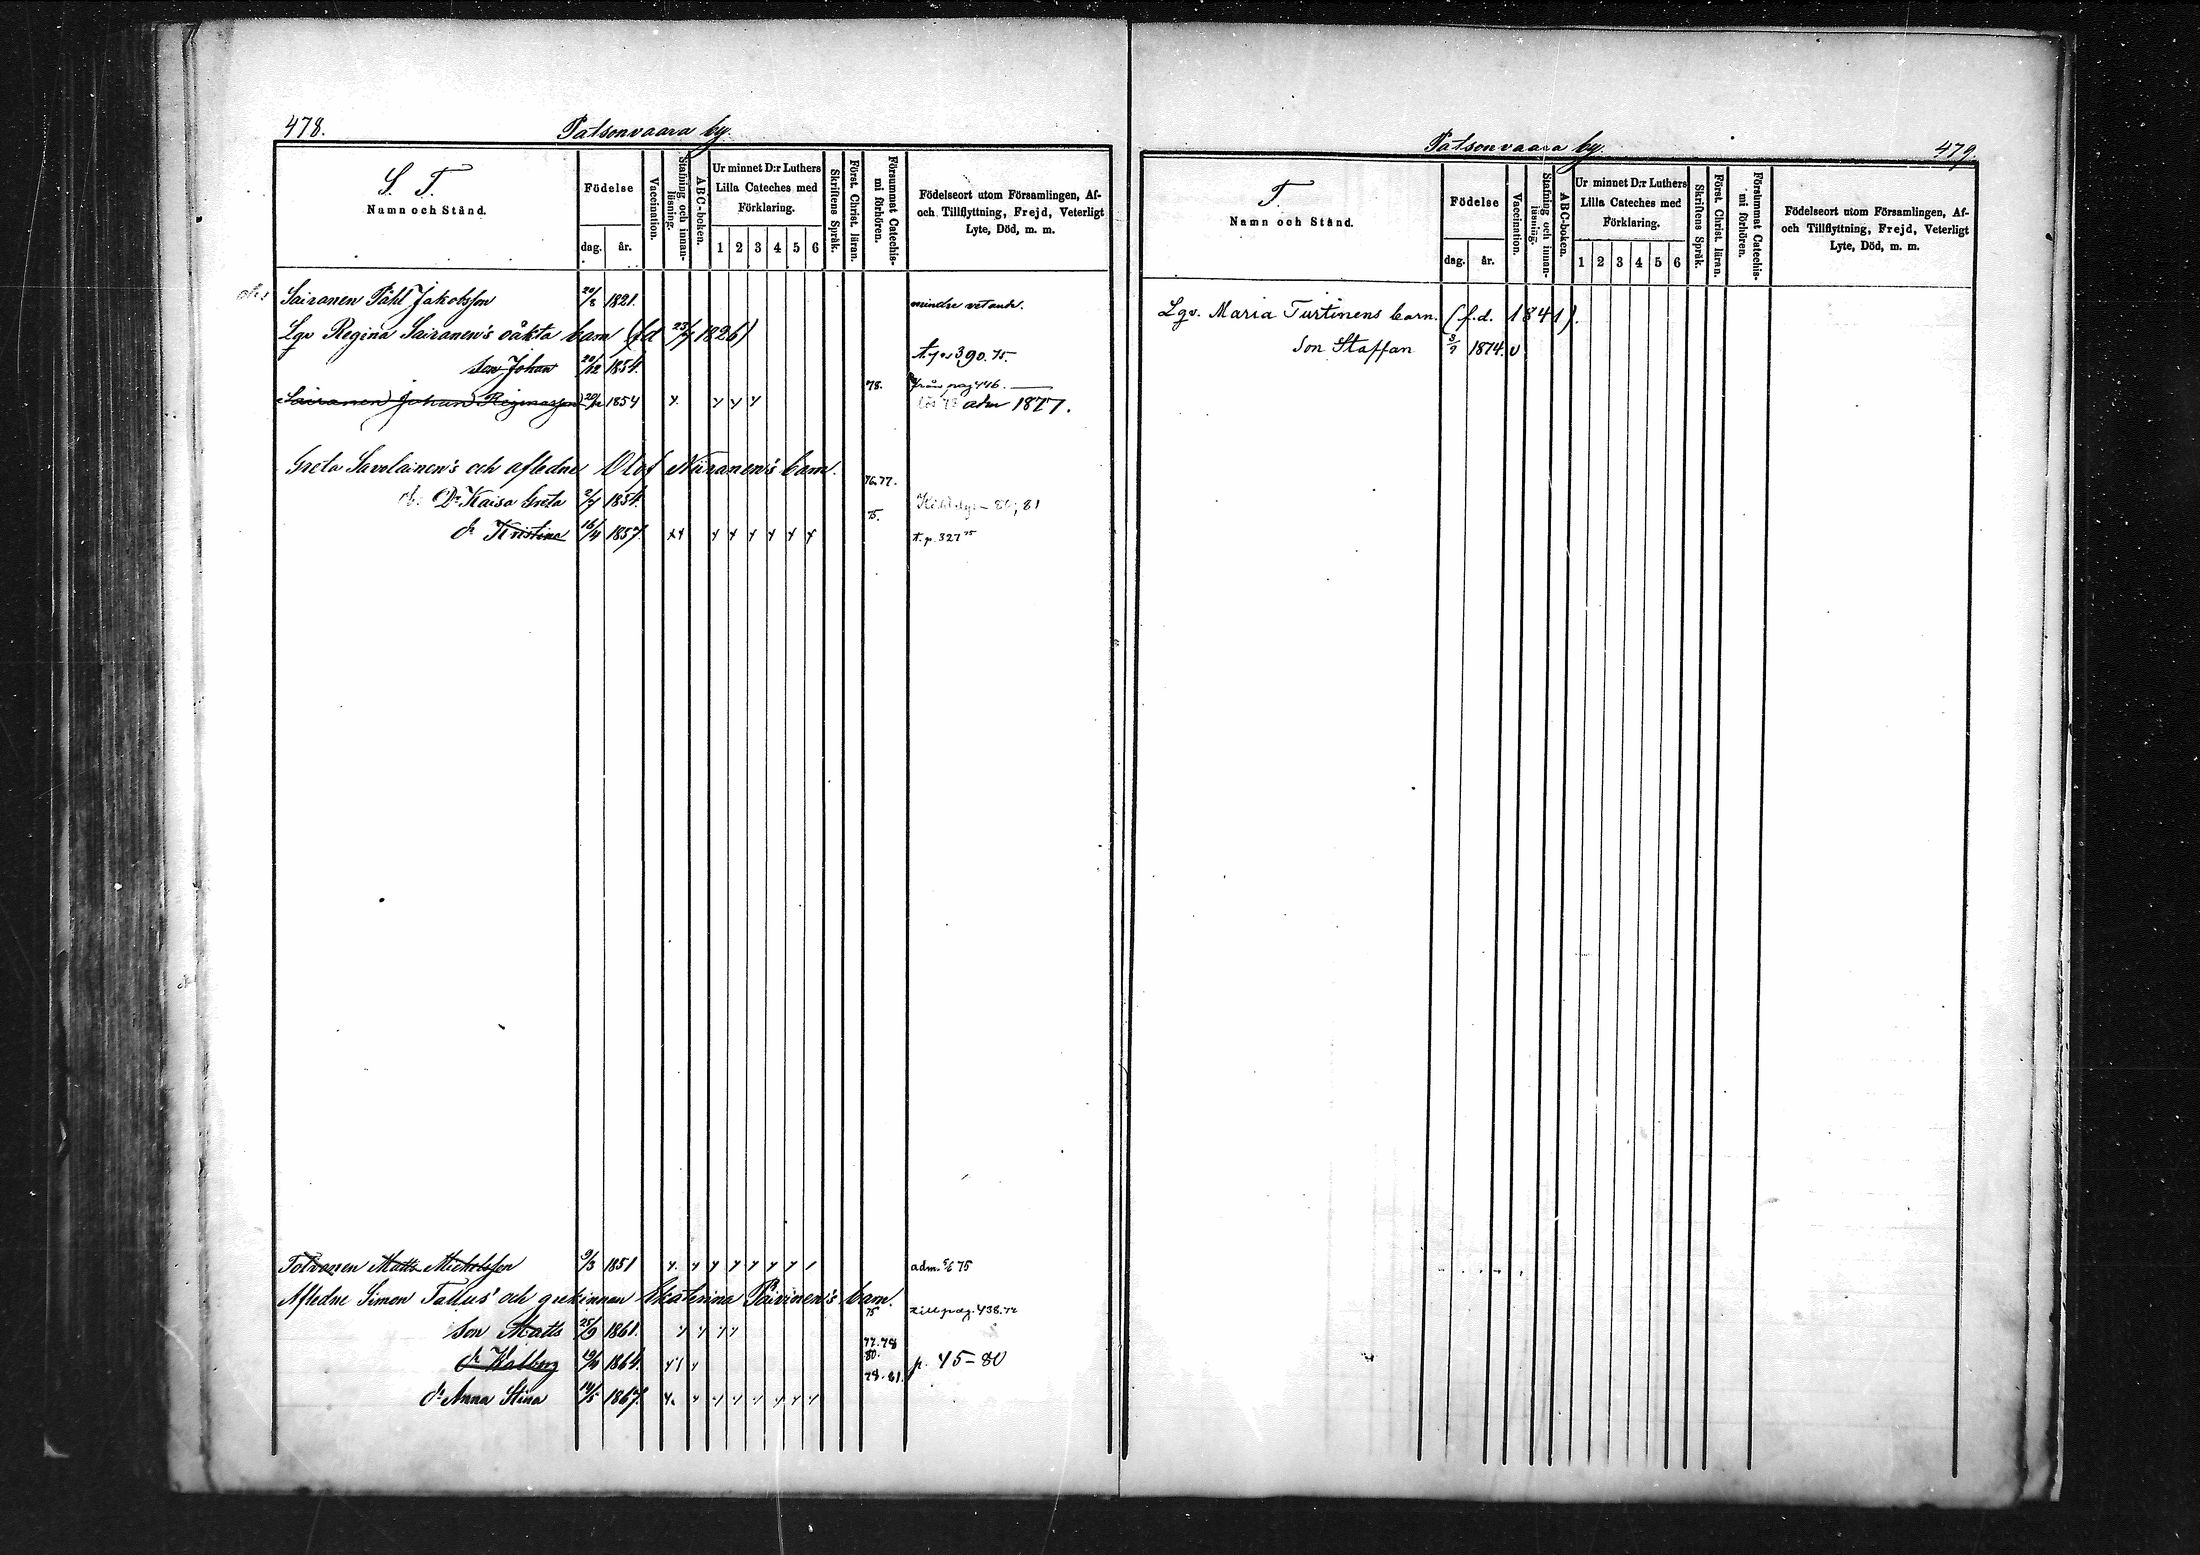 478.
Patsonvaara by.
S. T.
Namn och Stånd.
Födelse
dag.
år.
Vaccination.
Stafning och innanläsning.
ABC-boken.
Ur minnet D:r Luthers
Lilla Cateches med
Förklaring.
1 2 3 4 5 6
Skriftens Språk.
Först. Christ. läran.
Försummat Catechismi förhören.
Födelseort utom Församlingen, Af-
och Tillflyttning, Frejd, Veterligt
Lyte, Död, m. m.
Sairanen Påhl Jakobsson 20/3 1821. mindre vetande.
Lgv Regina Sairanen's oäkta barn (fd 23/7 1826)
Son Johan 20/12 1854. 390.75
78. från pag 446.
Sairanen Johan Reginasson 20/12 1854 adm 1877.
Greta Savolainen's och aflidne Olof Niiranen's barn.
76.77.
Dr Kaisa Greta 2/7 1854. 81
75.
dr Kristina 16/4 1857. t. p. 327 75
Tolvanen Matts Michelsson 9/3 1851 adm. 75
Aflidne Simon Tallus' och grekinnan Ekaterina Päivinen's barn.
75 till pag. 438.
Son Matts 25/9 1861.
77.78
80.
dr Walborg 1864. p. 45-80
78.81.
dr Anna Stina 14/5 1867.
Patsonvaara by.
479.
T.
Namn och Stånd.
Födelse
dag.
år.
Vaccination.
Stafning och innanläsning.
ABC-boken.
Ur minnet D:r Luthers
Lilla Cateches med
Förklaring.
1 2 3 4 5 6
Skriftens Språk.
Först. Christ. läran.
Försummat Catechismi förhören.
Födelseort utom Församlingen, Af-
och Tillflyttning, Frejd, Veterligt
Lyte, Död, m. m.
Lgv. Maria Turtinens barn. (f.d. 1841).
Son Staffan 3/9 1874. v